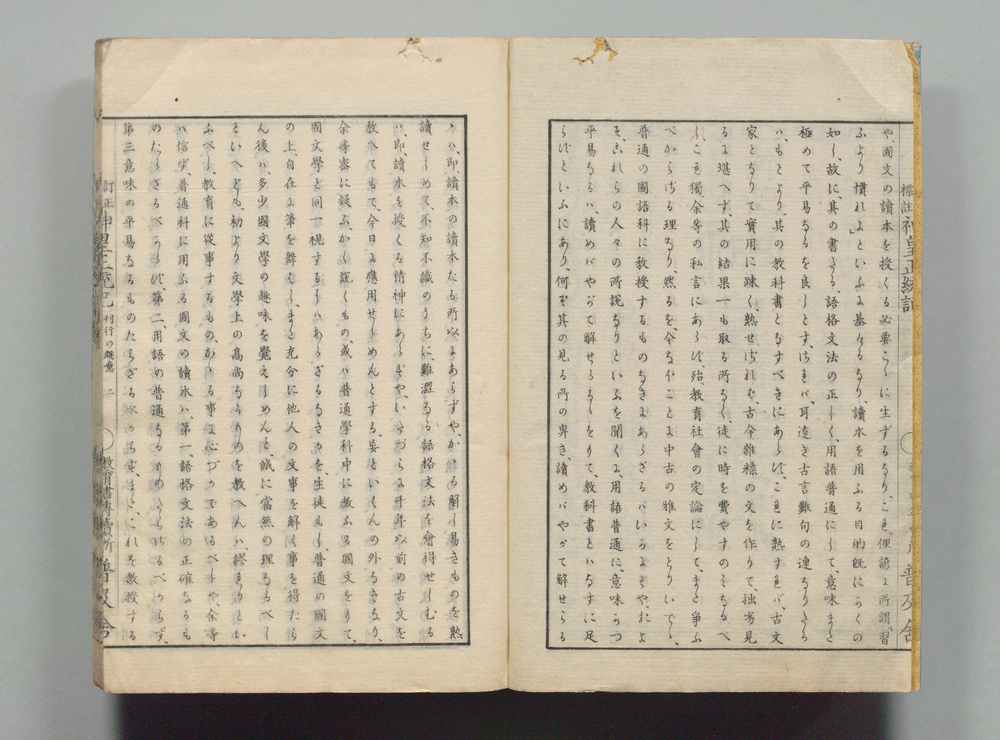 標註神皇正統記
普及舍
や國文の讀本を授くる必要こゝに生ずるなり、これ俚諺に所謂「習
ふより慣れよ」といふに基けるなり、讀本を用ふる目的既にかくの
如し、故に、其の書たる、語格文法の正しく、用語普通にして、意味また
極めて平易なるを良しとす、されバ、耳遠き古言難句の連なりたる
ハ、もとより、其の教科書となすべきにあらず、これに熟すれバ、古文
家となりて實用に疎く、熟せざれバ、古今雜糅の文を作りて、拙劣見
るに堪へず、其の結果一も取る所なく、徒に時を費やすのミなるべ
し、こは獨、余等の私言にあらず、殆、教育社會の定論にして、また爭ふ
べからざる理なり、然るを、今なほ、ことに中古の雅文をとりいでゝ、
普通の國語科に教授するものなきにあらざるハいかにぞや、およ
そ、これらの人々の所説なりといふを聞くに、用語普通に、意味かつ
平易なるハ、讀めバやがて解せらるゝをもて、教科書とハなすに足
らずといふにあり、何ぞ其の見る所の卑き、讀めバやがて解せらる
ゝハ、即、讀本の讀本たる所以にあらずや、かゝる解し易きものを熟
讀せしめて、不知不識のうちに、難澀なる語格文法を會得せしむる
ハ、即、讀本を授くる精神にあらずや、いたづらに千年以前の古文を
教へてもて、今日に應用せしめんとする、妄といハんの外なきなり、
余等審に疑ふ、かく説くもの、或ハ普通學科中に教ふる國文をもて、
國文學と同一視するにハあらざるなきやを、生徒もし、普通の國文
の上、自在に筆を舞ハし、また充分に他人の文事を解し事を得たら
ん後ハ、多少國文學の趣味を覺えしめんも、誠に當然の理なるべし
といへども、初より文學上の高尚なるものを教へんハ、謬れりとい
ふべし、教育に從事するもの、かゝる事に心づかであるべしや、余等
ハ信ず、普通科に用ふる國文の讀本ハ、第一、語格文法の正確なるも
のたらざるべからず、第二、用語の普通なるものたらざるべからず、
第三意味の平易なるものたらざるべからず、これを教授する
訂正神皇正統記 刊行の趣意 二
教育書專賣所 普及舍